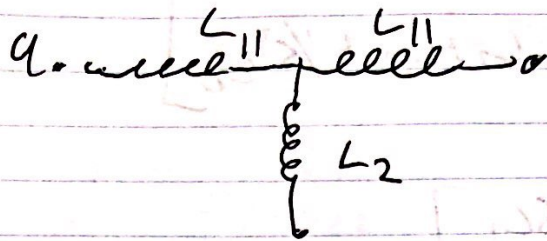 9. L11 L11
L2